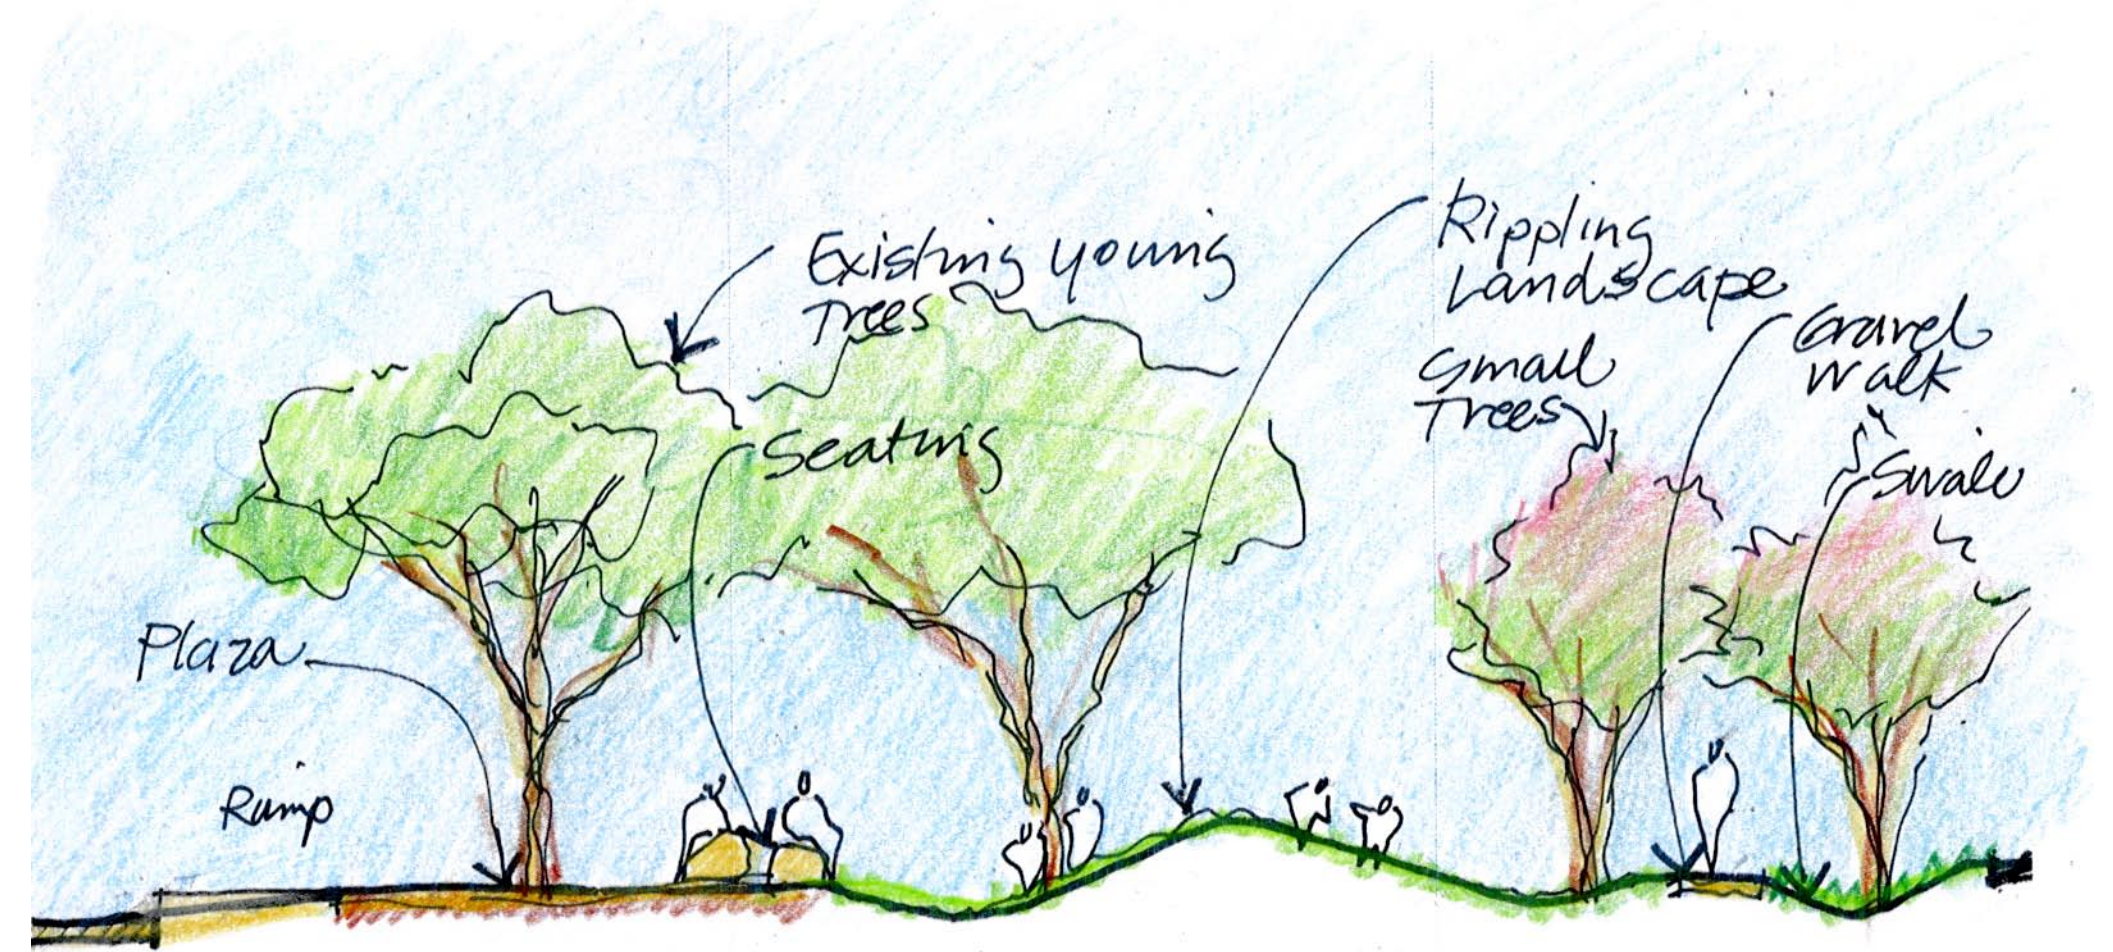 Existing young
Trees
Rippling
Landscape
Gravel
Walk
Small
Trees
Seating
Swale
Plaza
Ramp